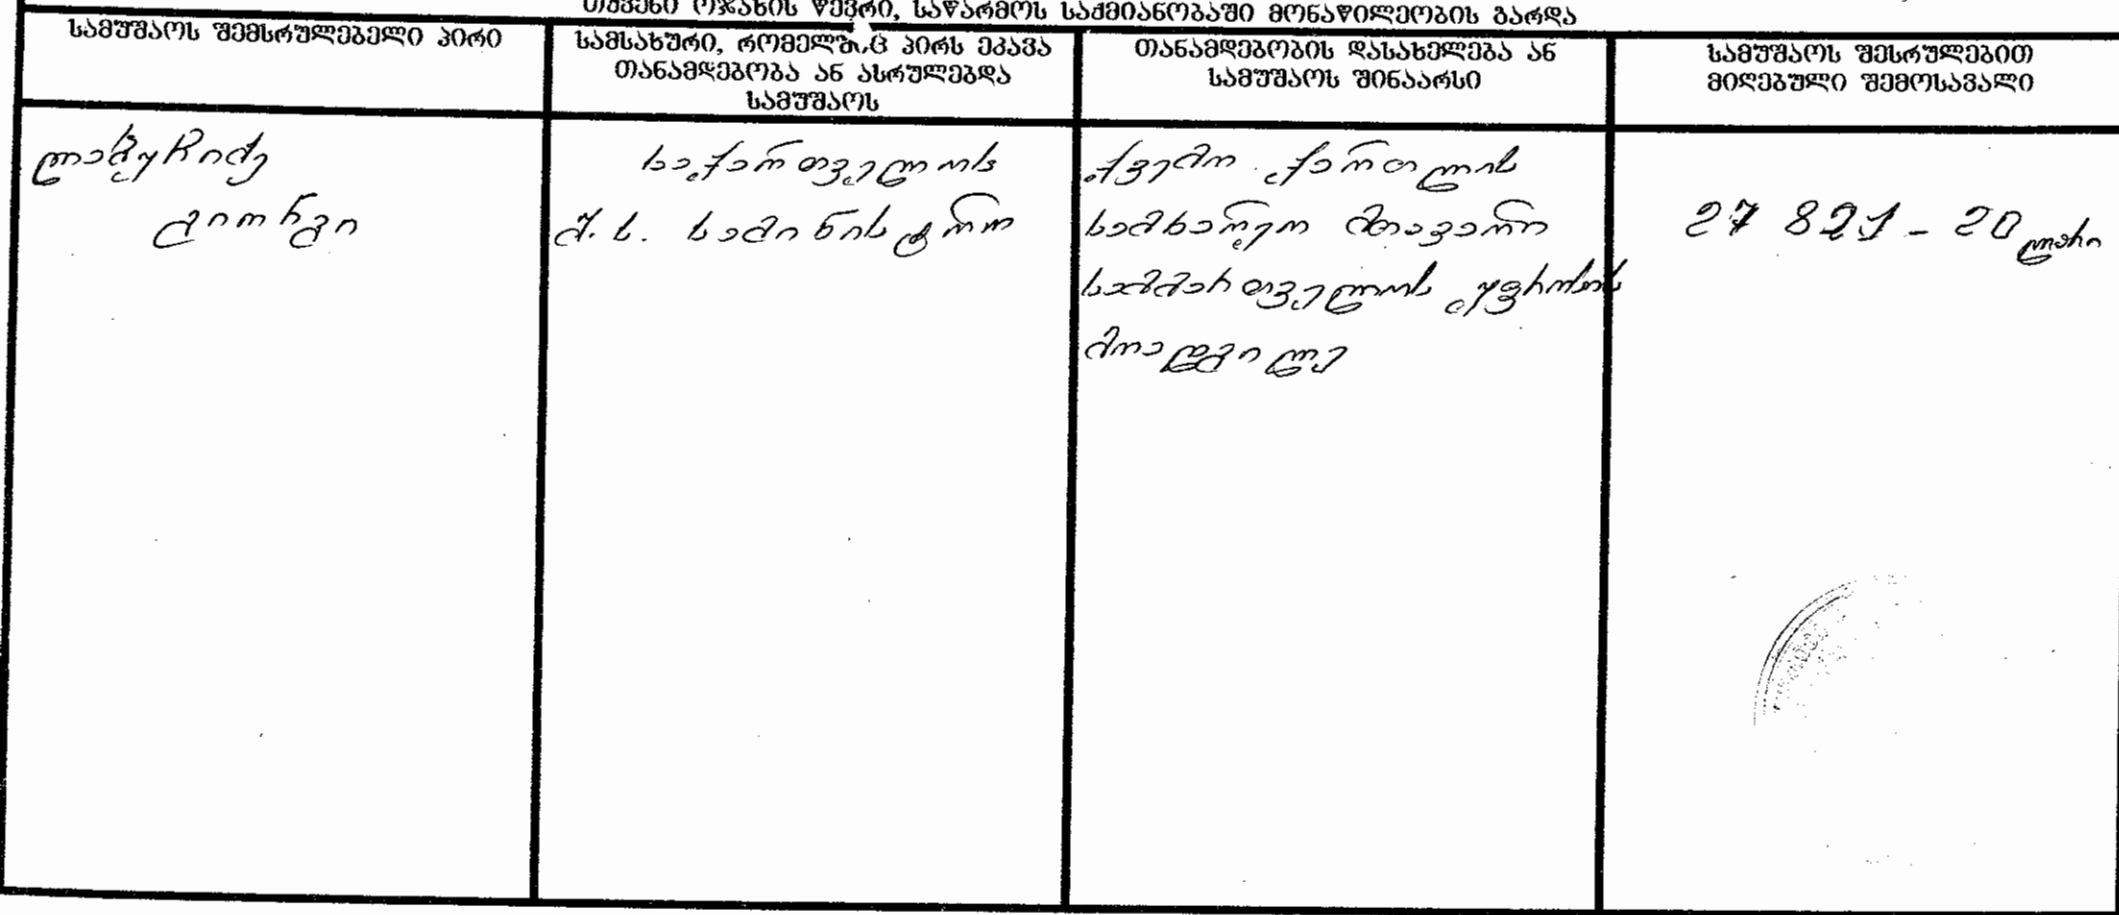 თქვენი ოჯახის წევრი, საწარმოს საქმიანობაში მონაწილეობის გარდა
სამუშაოს შემსრულებელი პირი
სამსახური, რომელშიც პირს ეკავა
თანამდებობა ან ასრულებდა
სამუშაოს
თანამდებობის დასახელება ან
სამუშაოს შინაარსი
სამუშაოს შესრულებით
მიღებული შემოსავალი
გიორგი
საქართველოს
შ.ს. სამინისტრო
ქვემო ქართლის
სამხარეო მთავარი
სამმართველოს უფროსის
მოადგილე
27 821 - 20 ლარი